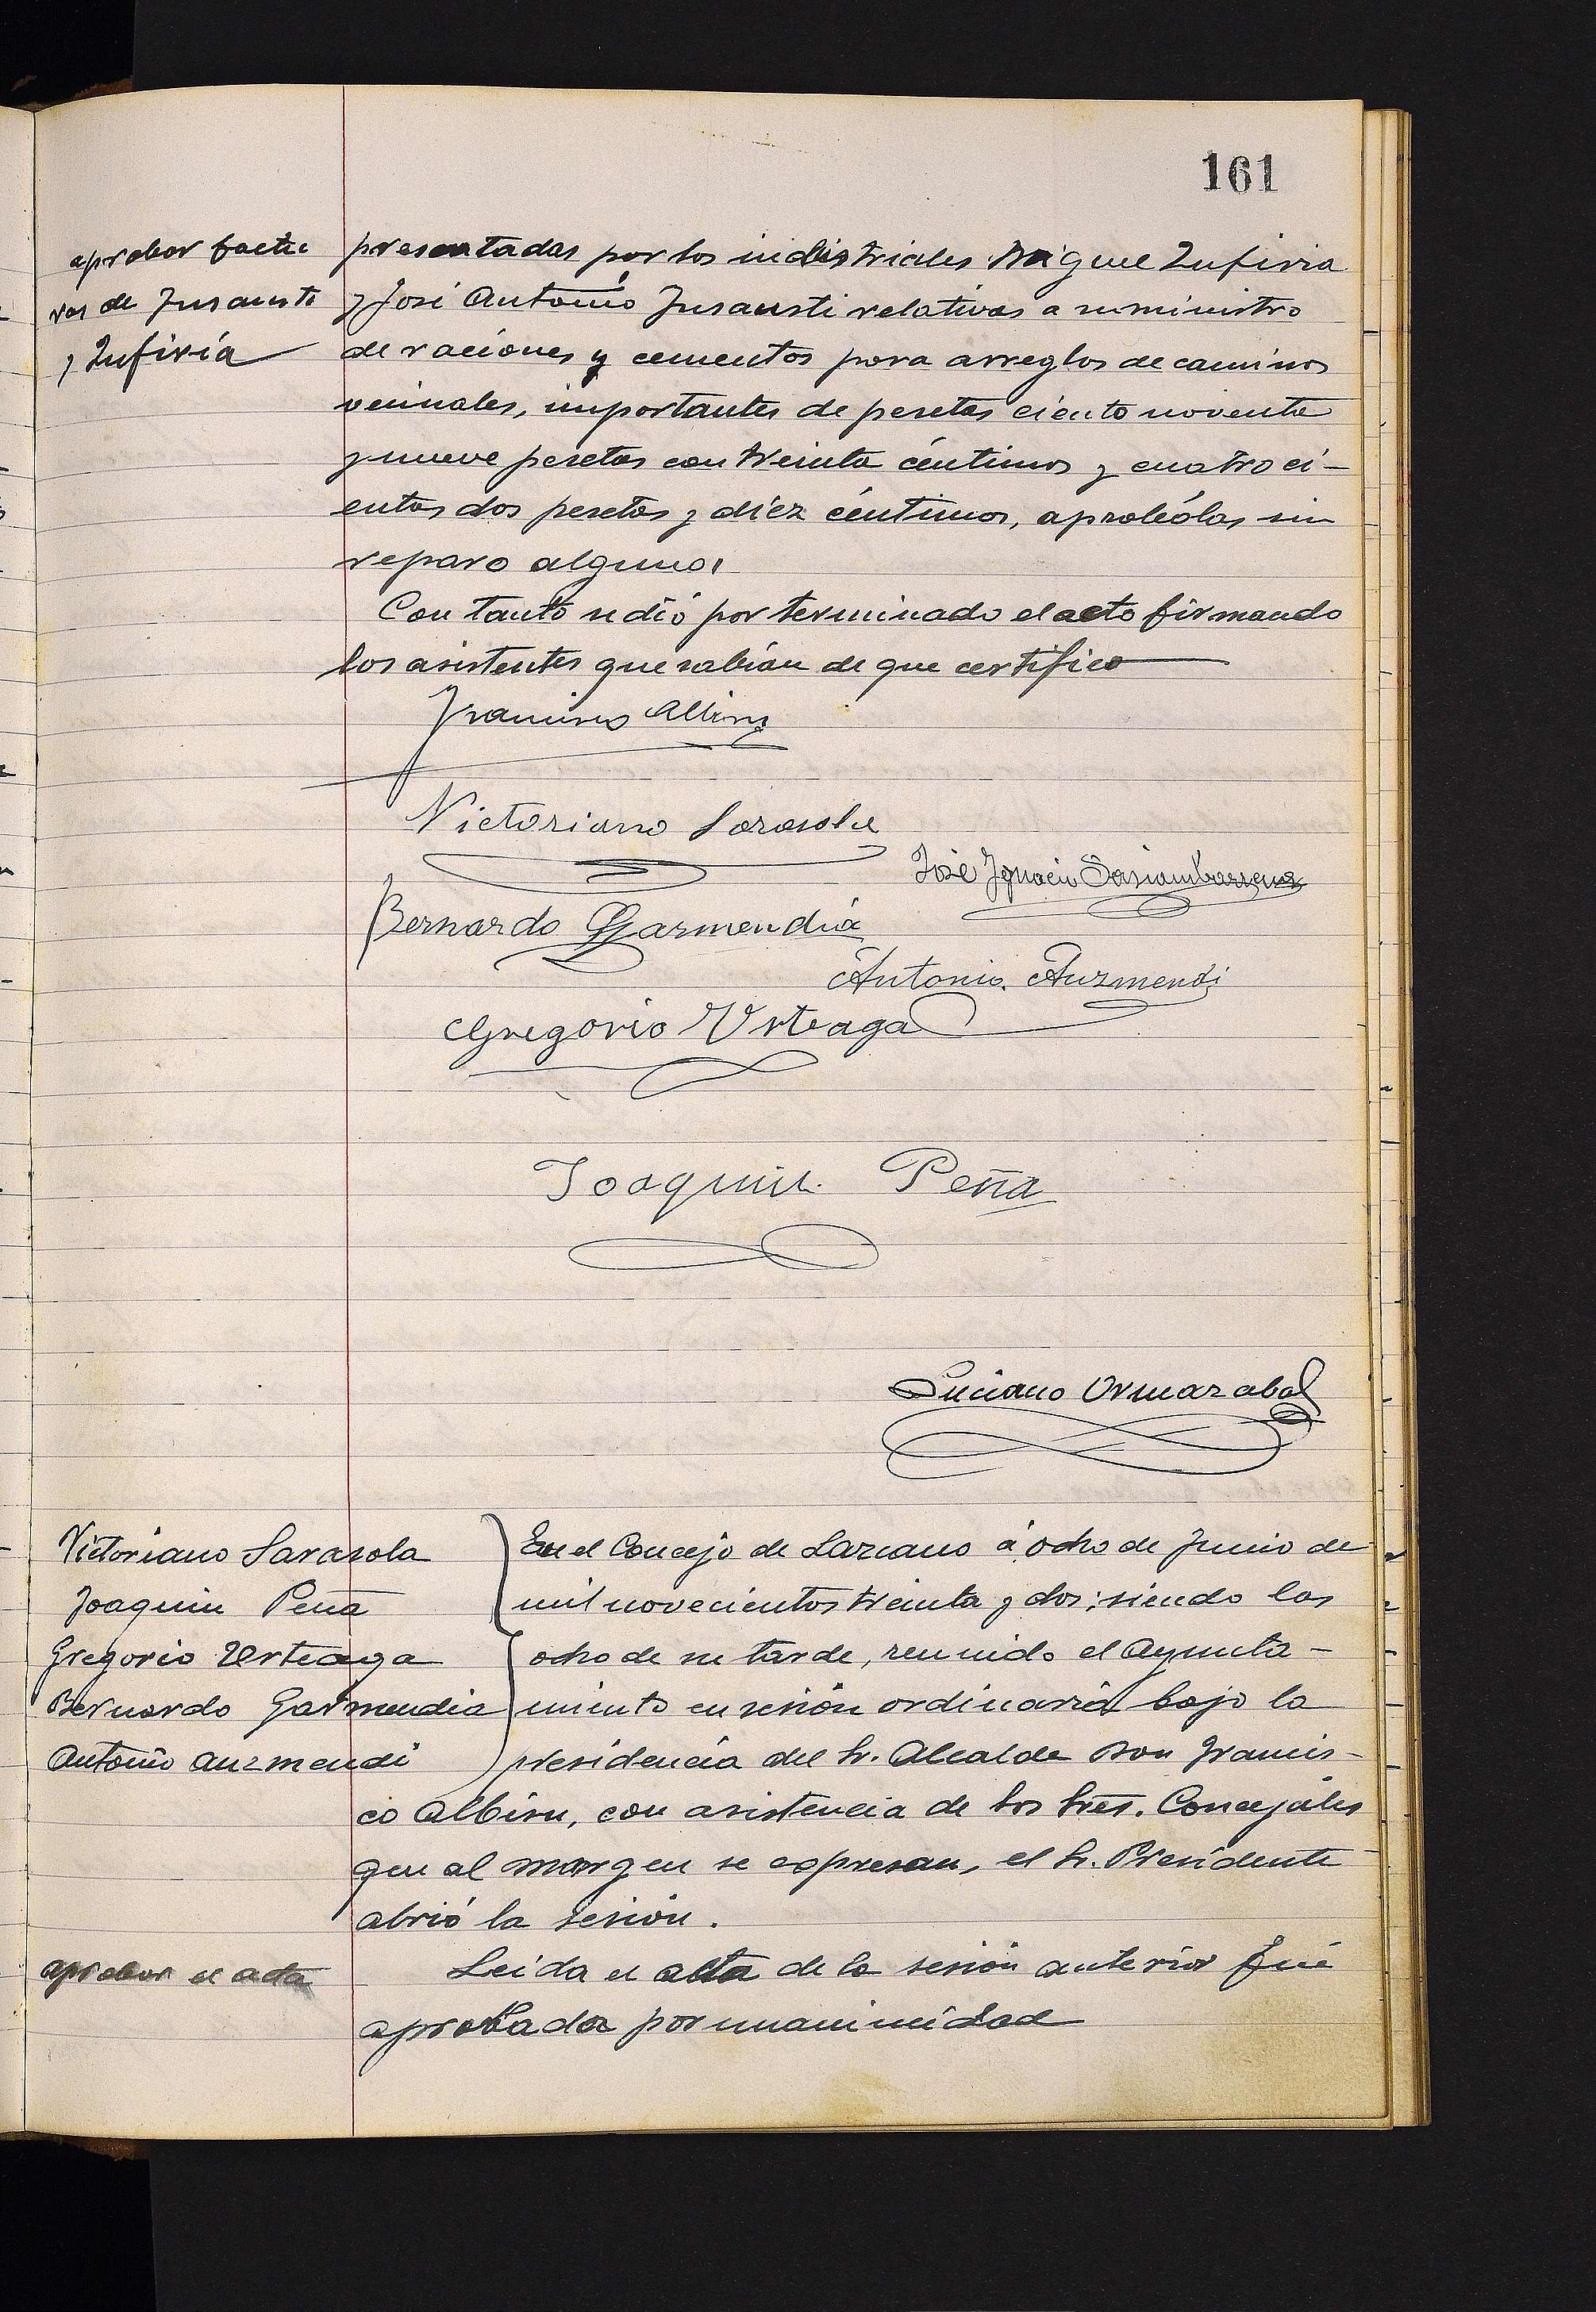 161
aprobar factu
ras de Insausti
y Zufiria
presentadas por los industriales Miguel Zufiria
y José Antonio Insausti relativas a suministro
de raciones y cementos para arreglos de caminos
vecinales, importantes de pesetas ciento noventa
y nueve pesetas con treinta céntimos y cuatroci-
entas dos pesetas y diez céntimos, aprobólas sin
reparo alguno.
Con tanto se dió por terminado el acto firmando
los asistentes que sabian de que certifico
Francisco Albisu
Victoriano Sarasola
José Ignacio
Bernardo Garmendia
Antonio Auzmendi
Gregorio Urteaga
Joaquin Peña
Luciano Ormazabal
Victoriano Sarasola
Joaquin Peña
Gregorio Urteaga
Bernardo Garmendia
Antonio Auzmendi
En el Concejo de Lazcano á ocho de Junio de
mil novecientos treinta y dos; siendo las
ocho de su tarde, reunido el Ayunta-
miento en sesión ordinaria bajo la
presidencia del Sr. Alcalde Don Francis-
co Albisu, con asistencia de los Sres. Concejales
que al margen se expresan, el Sr. Presidente
abrió la sesión.
aprobar el acta
Leida el acta de la sesión anterior fué
aprobada por unanimidad